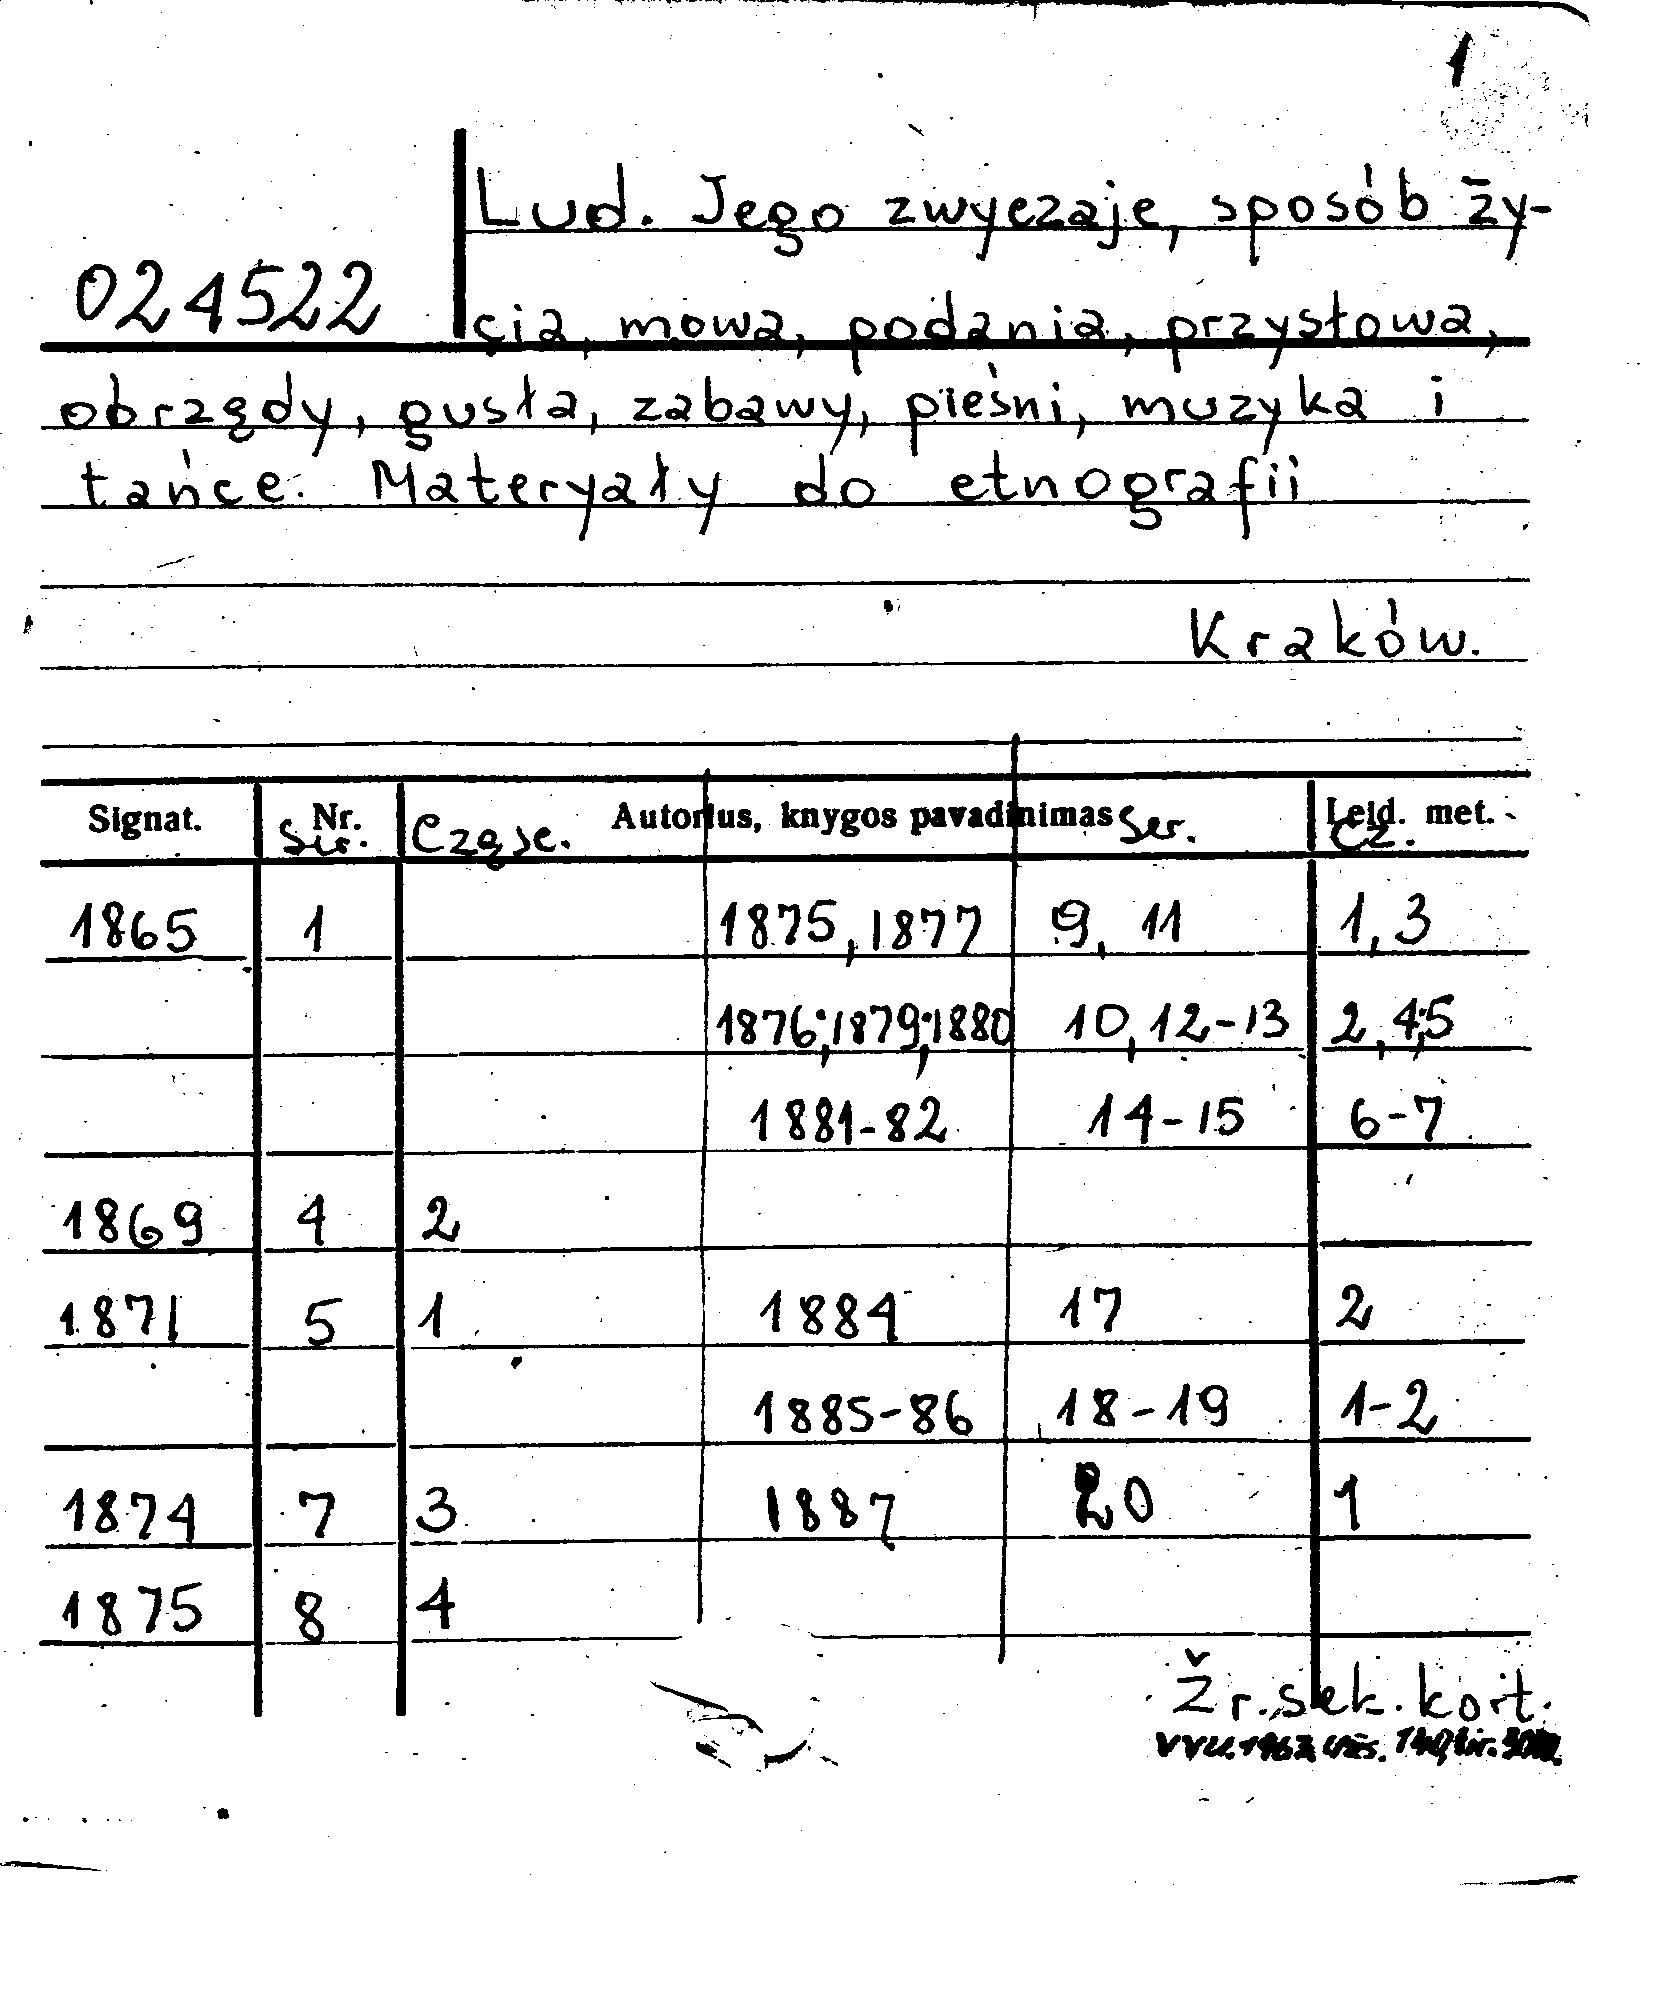 1
Lud. Jego zwyczaje, sposób ży-
024522 cia, mowa, podania, przysłowa,
obrzędy, gusła, zabawy, pieśni, muzyka i
tańce. Materyały do etnografii
Kraków.
Signat. Nr. Autorius, knygos pavadinimas Ser. Leid. met.
Sir. Częsc. Cz.
1865 1 1875, 1877 9, 11 1, 3
1876; 1879; 1880 10, 12-13 2, 4; 5
1881-82 14-15 6-7
1869 4 2
1871 5 1 1884 17 2
1885-86 18-19 1-2
1874 7 3 1887 20 1
1875 8 4
Žr. sek. kort.
VVU. 1967 užs.